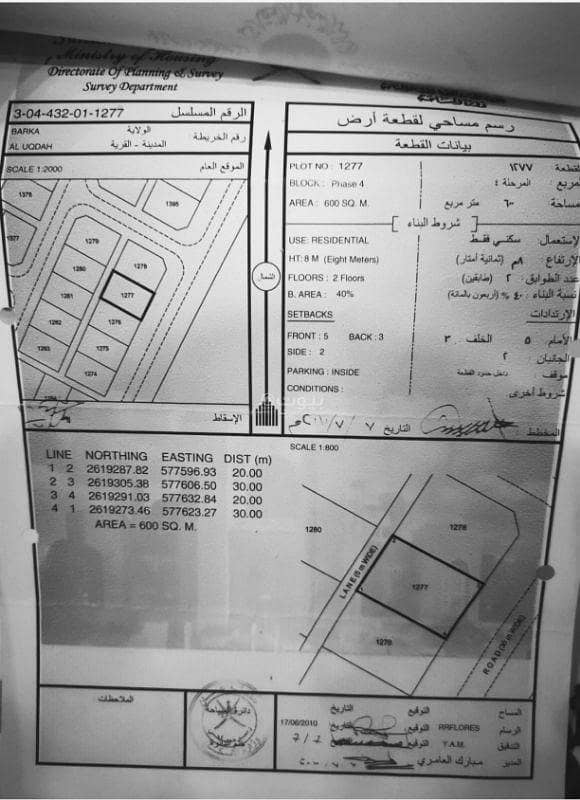 Ministry of Housing
Directorate Of Planning & Survey
Survey Department
3-04-432-01-1277 الرقم المسلسل
BARKA الولاية
AL UQDAH المدينة - القرية رقم الخريطة
SCALE 1:2000 الموقع العام
1376
1395
1377
1279
1278
1280
1277
1281
1276
1282
1275
1283
1274
الإسقاط
الشمال
رسم مساحي لقطعة أرض
بيانات القطعة
PLOT NO : 1277 القطعة ١٢٧٧
BLOCK : Phase 4 مربع : المرحلة ٤
AREA : 600 SQ. M. مساحة متر مربع
شروط البناء
USE: RESIDENTIAL لاستعمال: سكني فقط
HT: 8 M (Eight Meters) الإرتفاع ٨م (ثمانية أمتار)
FLOORS : 2 Floors عدد الطوابق ٢ (طابقين)
B. AREA : 40% نسبة البناء ٤٠ % (أربعون بالمائة)
SETBACKS الإرتدادات
FRONT : 5 BACK : 3 الأمام ٥ الخلف ٣
SIDE : 2 الجانبان ٢
PARKING : INSIDE موقف داخل حدود القطعة
CONDITIONS : شروط أخرى
المخطط التاريخ
بيوت
LINE NORTHING EASTING DIST (m)
1 2 2619287.82 577596.93 20.00
2 3 2619305.38 577606.50 30.00
3 4 2619291.03 577632.84 20.00
4 1 2619273.46 577623.27 30.00
AREA = 600 SQ. M.
SCALE 1:800
1280
1278
LANE (6 m WIDE)
1277
1276
ROAD
WIDE)
الملاحظات
دائرة المساحة
المساح التوقيع التاريخ
الرسام RRFLORES التوقيع التاريخ 17/06/2010
التدقيق Y.A.M. التوقيع
المدير مبارك العامري